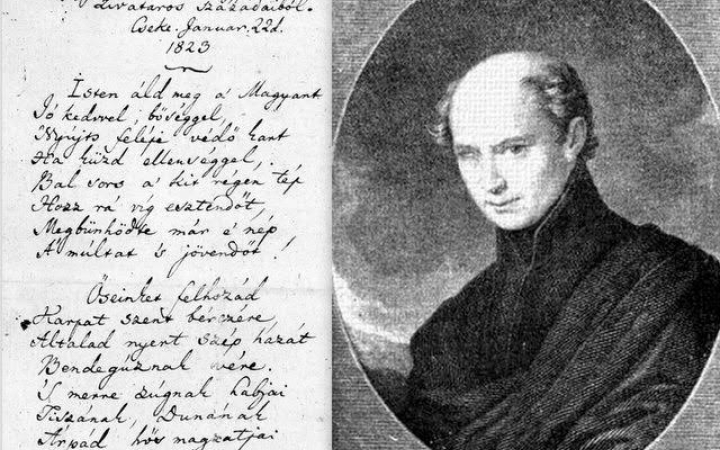 Zivataros Századaiból.
Cseke. Januar. 22d.
1823
Isten áld meg a' Magyart
Jó kedvvel, bőséggel,
Nyújts feléje védő kart
Ha küzd ellenséggel,
Bal sors a' kit régen tép
Hozz rá víg esztendőt,
Megbünhödte már e' nép
A' múltat 's jövendőt!
Őseinket felhozád
Kárpát szent bérczére
Általad nyert szép hazát
Bendegúznak vére.
'S merre zúgnak habjai
Tiszának, Dunának
Árpád hős magzatjai